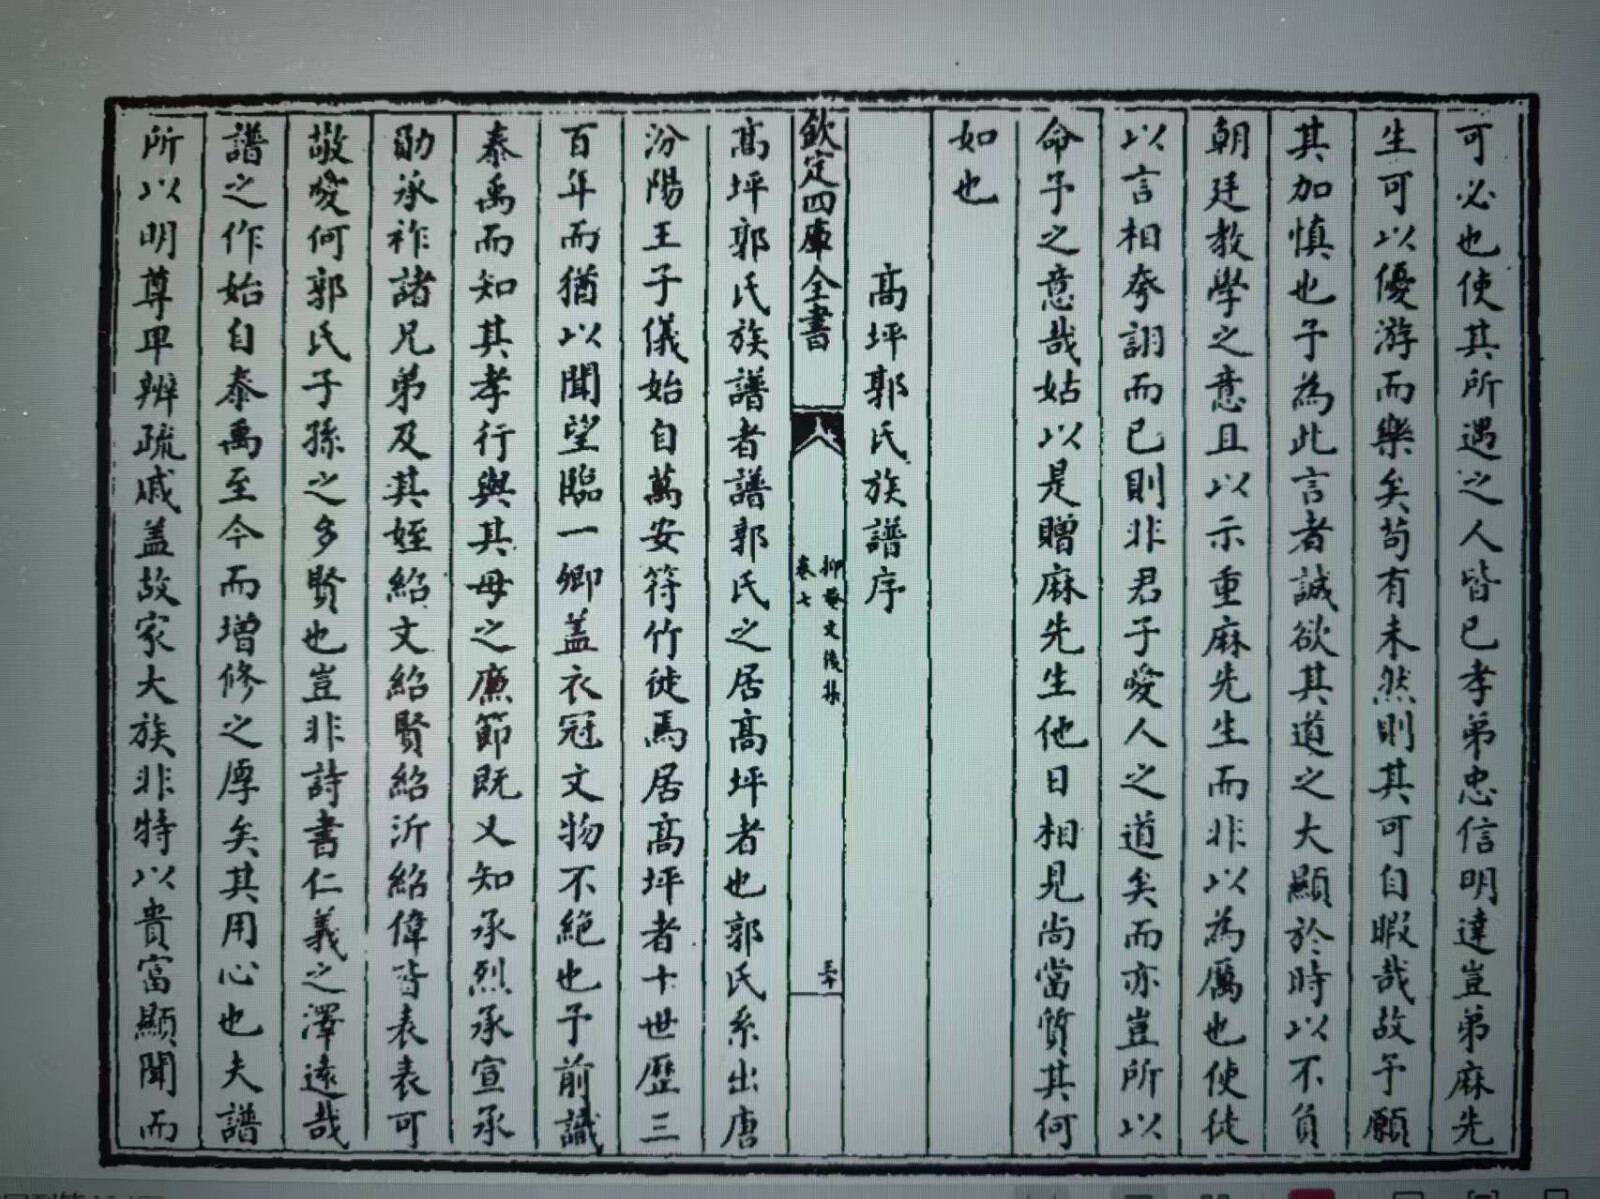 可必也使其所遇之人皆已孝弟忠信明達豈弟麻先
生可以優游而樂矣苟有未然則其可自暇哉故予願
其加慎也予為此言者誠欲其道之大顯於時以不負
朝廷教學之意且以示重麻先生而非以為厲也使徒
以言相夸詡而已則非君子愛人之道矣而亦豈所以
命予之意哉姑以是贈麻先生他日相見尚當質其何
如也
高坪郭氏族譜序
欽定四庫全書
抑菴文後集
卷七
三十
高坪郭氏族譜者譜郭氏之居高坪者也郭氏系出唐
汾陽王子儀始自萬安符竹徙焉居高坪者十世歷三
百年而猶以聞望臨一鄉蓋衣冠文物不絕也予前識
泰禹而知其孝行與其母之廉節既又知承烈承宣承
勛承祚諸兄弟及其姪紹文紹賢紹沂紹偉皆表表可
敬愛何郭氏子孫之多賢也豈非詩書仁義之澤遠哉
譜之作始自泰禹至今而增修之厚矣其用心也夫譜
所以明尊卑辨疏戚蓋故家大族非特以貴富顯聞而